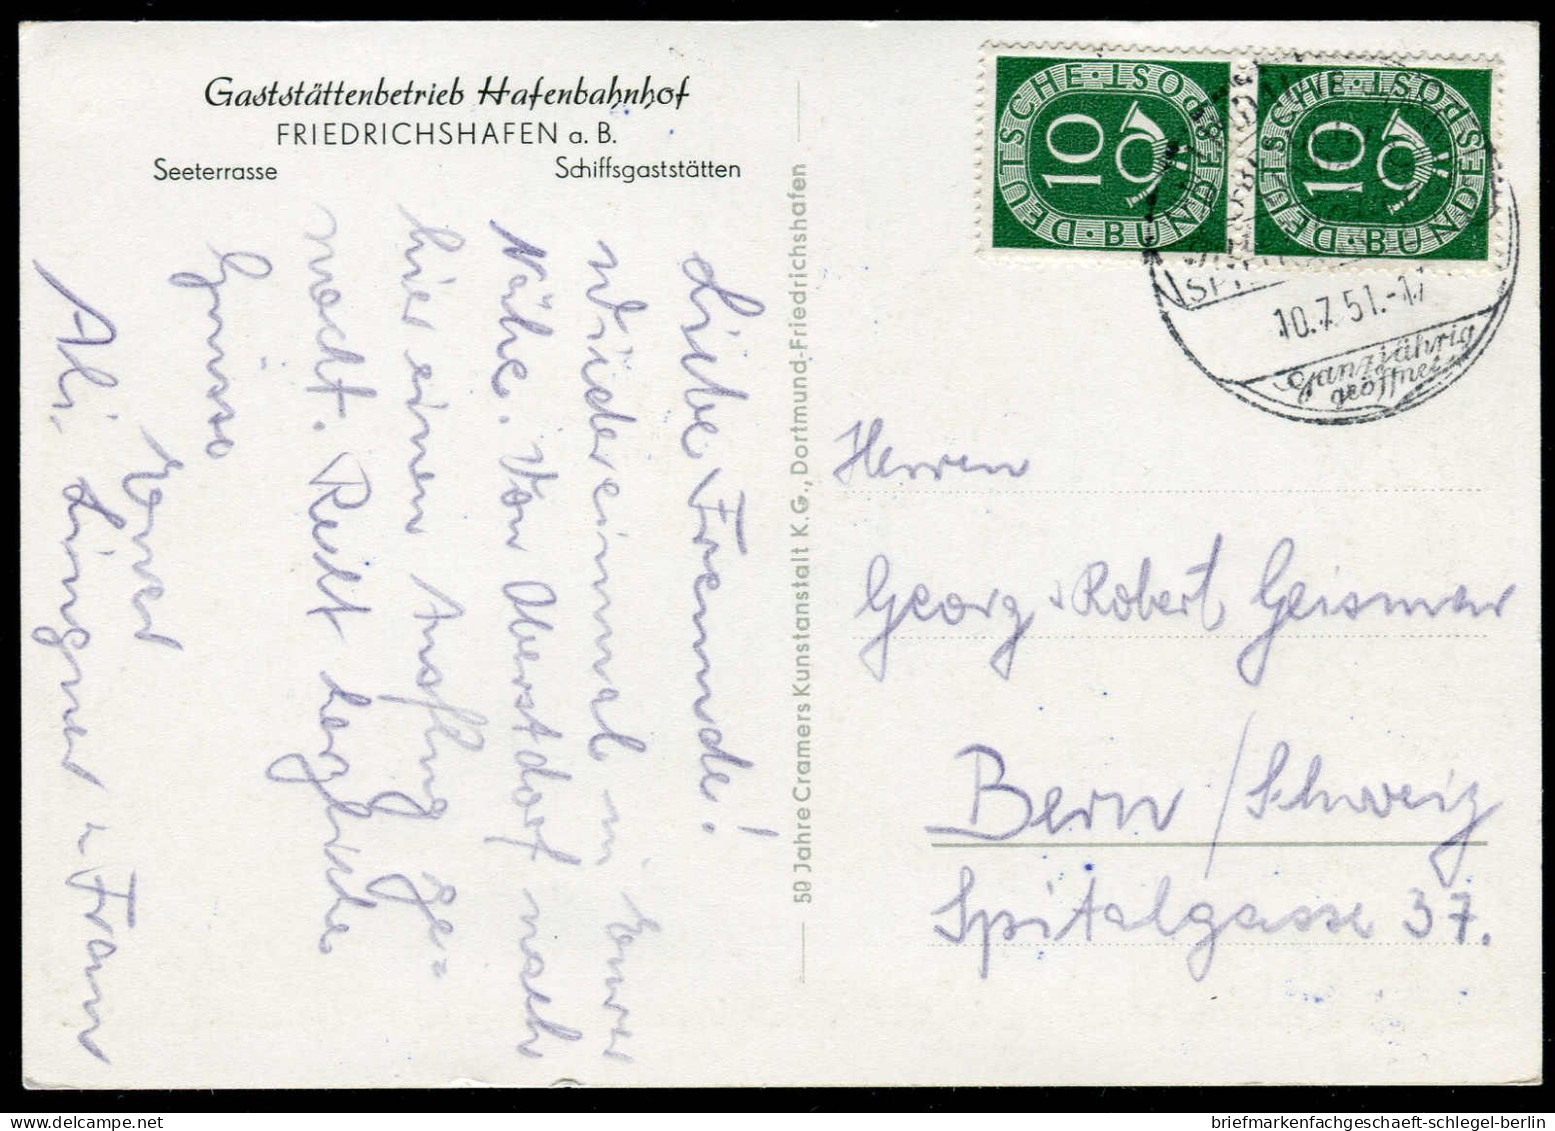 Gaststättenbetrieb Hafenbahnhof
FRIEDRICHSHAFEN a. B.
Seeterrasse Schiffsgaststätten
Liebe Freunde!
Wieder einmal in Eurer
Nähe. Von Oberstdorf nach
hier einen Ausflug ge=
macht. Recht herzliche
Grüsse
Euer
Ali Lingner u Frau
50 Jahre Cramers Kunstanstalt K.G., Dortmund-Friedrichshafen
DEUTSCHE·BUNDESPOST·
10
DEUTSCHE·BUNDESPOST·
10
10.7.51.-17
Ganzjährig
geöffnet
Herren
Georg & Robert Geismar
Bern / Schweiz
Spitalgasse 37.
briefmarkenfachgeschaeft-schlegel-berlin